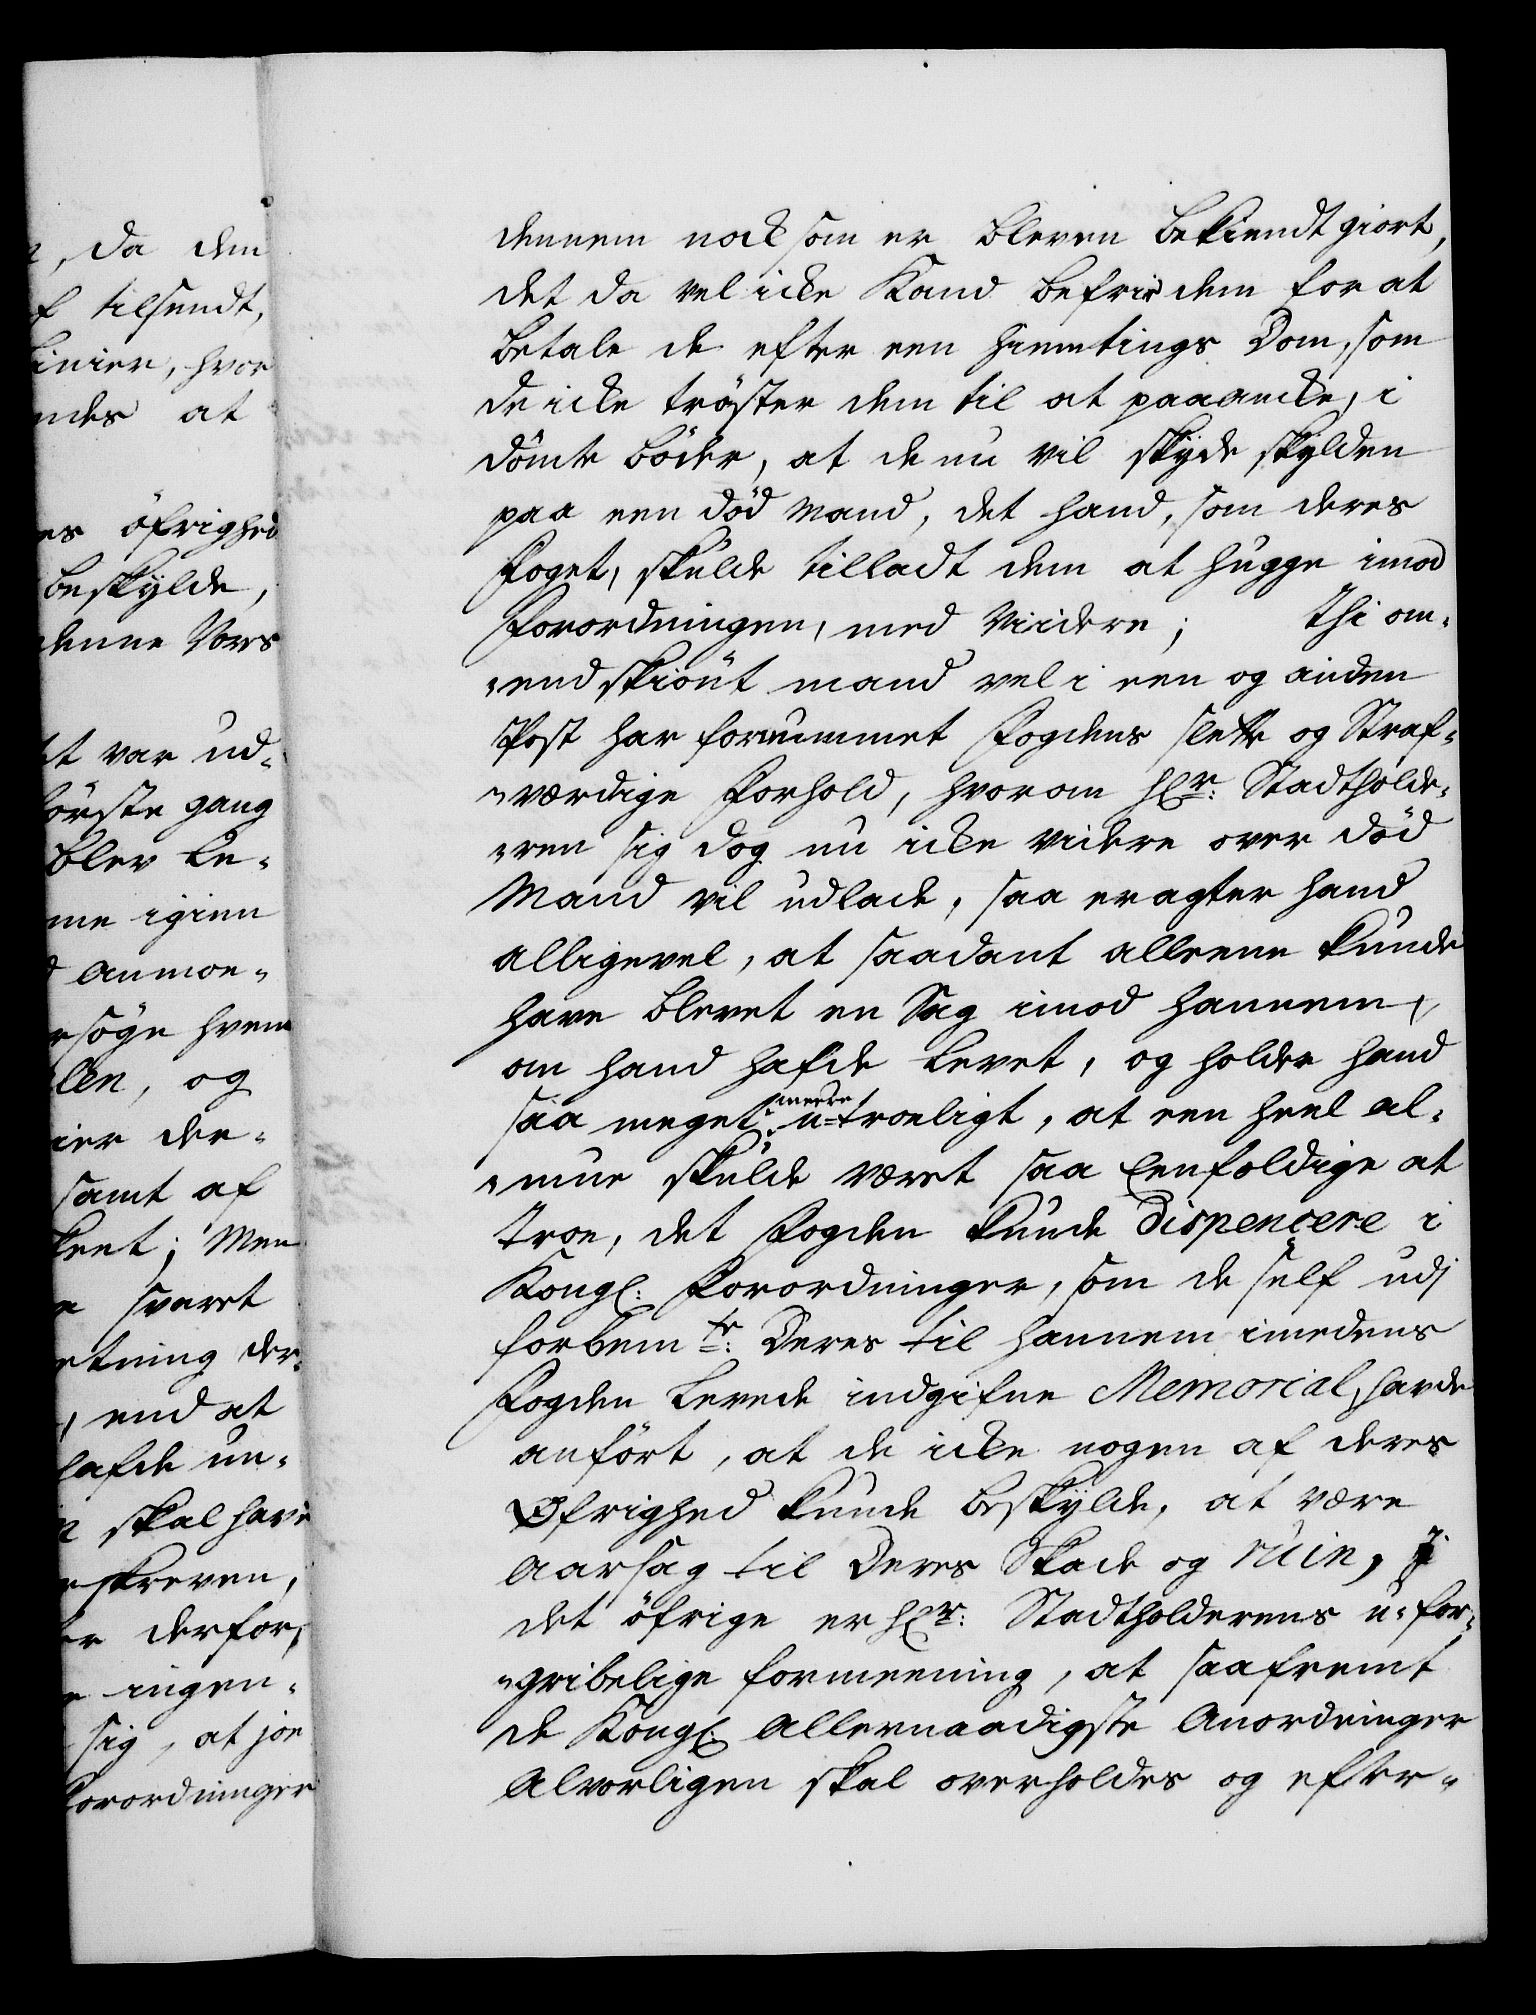 , da dem
f tilsendt,
linier, hvor
ndes at
es öfrighed
beskylde,
denne Vores
t var ud-
förste gang
blev le-
me igien
d anmoe-
rsöge hvem
len, og
ier der-
samt af
kent; Men
e svaret
etning der-
, end at
lafde un-
skal have
r skreven,
er derfor,
e ingen-
sig, at jeg
Forordninger
dennem nock som er bleven bekiendt giort,
det da vel icke Kand befrie dem for at
betale de efter een Hiemtings Dom, som
de icke tröster dem til at paaancke, i
dömte böder, at de nu vil skyde skylden
paa een död Mand, det hand, som deres
Foget, skulde tilladt dem at hugge imod
Forordningen, med Viidere; Thi om-
-endskiönt mand vel i een og anden
Post har fornummet Fogdens slette og Straf-
-værdige Forhold, hvorom Hr: Stadtholde-
-ren sig dog nu icke videre over död
Mand vil udlade, saa eragter hand
alligevel, at saadant alleene kunde
have blevet en Sag imod hannem,
om hand hafde levet, og holder hand
saa meget meere u-troeligt, at een heel al-
-mue skulde været saa Eenfoldige at
troe, det Fogden kunde Dispencere i
Kongl: Forordninger, som de self udj
forbemte: Deres til hannem imedens
Fogden levede indgifne Memorial, havde
anfört, at de icke nogen af deres
Øfrighed kunde beskylde, at være
Aarsag til Deres Skade og ruin, J
det öfrige er Hr: Stadtholderens u-for-
-gribelige formeening, at saafremt
de Kongl: Allernaadigste Anordninger
Alvorligen skal overholdes og efter-